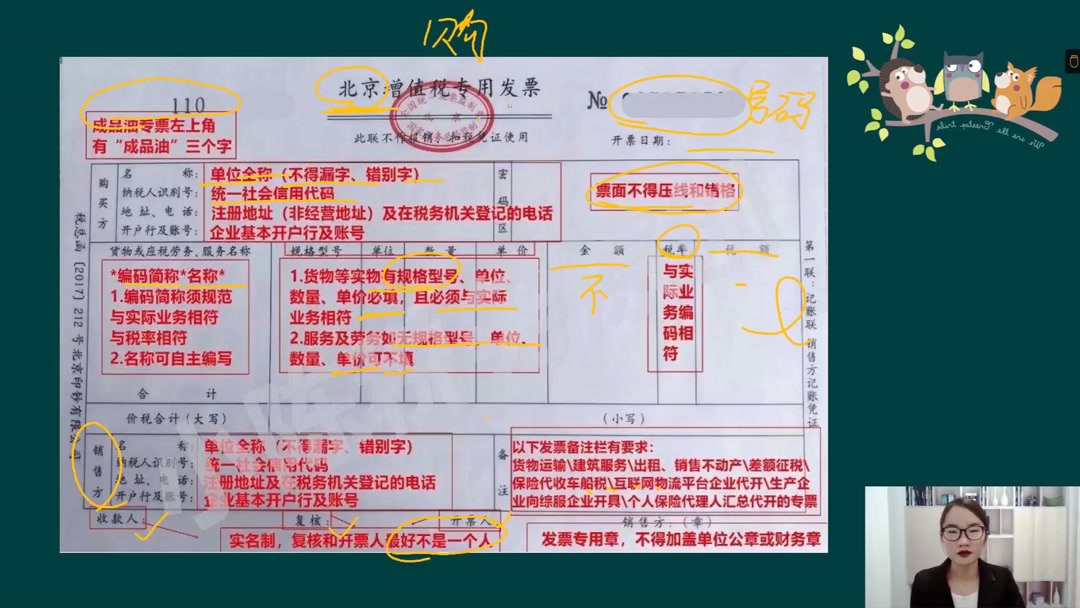 购
北京增值税专用发票
110
№
号码
此联不作报销、扣税凭证使用
开票日期：
成品油专票左上角
有“成品油”三个字
购买方
名 称：
单位全称（不得漏字、错别字）
纳税人识别号：
统一社会信用代码
地 址、电 话：
注册地址（非经营地址）及在税务机关登记的电话
开户行及账号：
企业基本开户行及账号
密码区
票面不得压线和错格
货物或应税劳务、服务名称
规格型号
单位
数 量
单 价
金 额
税率
税 额
*编码简称*名称*
1.编码简称须规范
与实际业务相符
与税率相符
2.名称可自主编写
1.货物等实物有规格型号、单位、
数量、单价必填，且必须与实际
业务相符
2.服务及劳务如无规格型号、单位、
数量、单价可不填
不
与实
际业
务编
码相
符
合 计
价税合计（大写）
（小写）
销售方
名 称：
单位全称（不得漏字、错别字）
纳税人识别号：
统一社会信用代码
地 址、电 话：
注册地址及在税务机关登记的电话
开户行及账号：
企业基本开户行及账号
备注
以下发票备注栏有要求：
货物运输\建筑服务\出租、销售不动产\差额征税\
保险代收车船税\互联网物流平台企业代开\生产企
业向综服企业开具\个人保险代理人汇总代开的专票
收款人：
复核：
开票人：
销售方：（章）
实名制，复核和开票人最好不是一个人
发票专用章，不得加盖单位公章或财务章
税总函〔2017〕212号北京印钞有限公司
第一联：记账联 销售方记账凭证